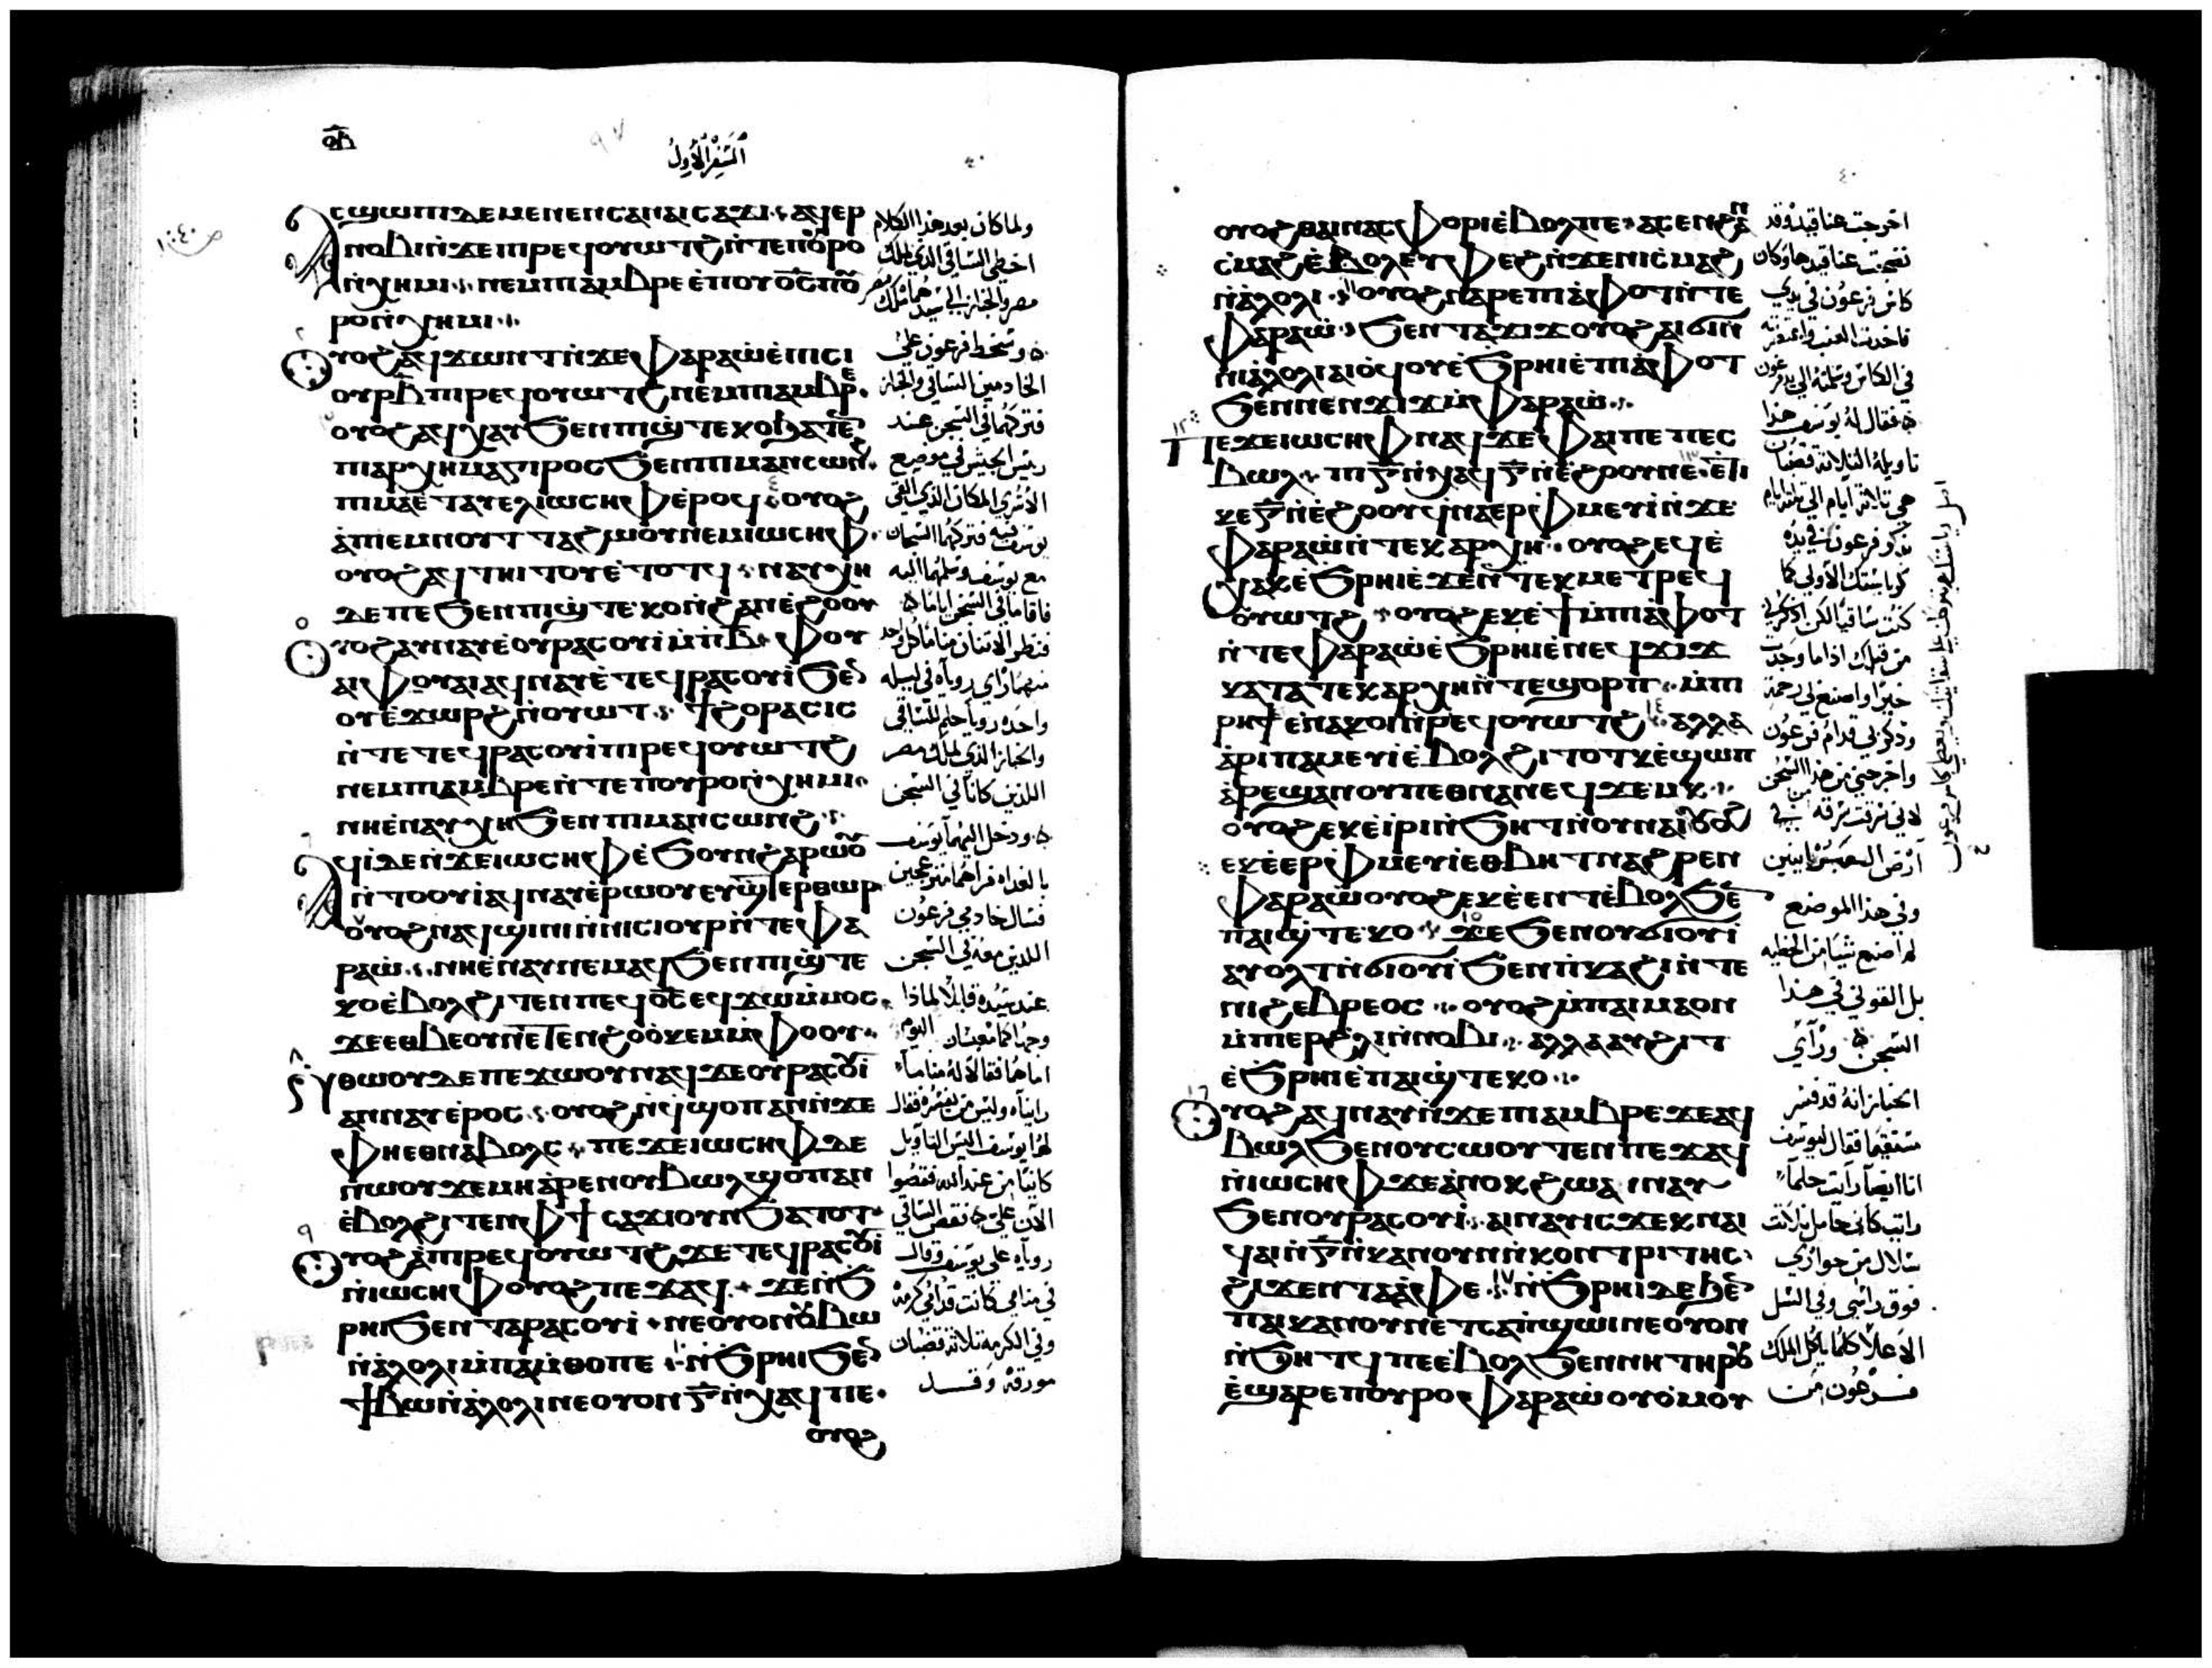 ⲟⲇ
٩٧
السفر الاول
ⲁⲥϣⲱⲡⲓ ⲇⲉ ⲙⲉⲛⲉⲛⲥⲁ ⲛⲁⲓⲥⲁϫⲓ ⲁϥⲉⲣ
ⲛⲟⲃⲓ ⲛ̀ϫⲉ ⲡⲓⲣⲉϥⲟⲩⲱⲧϩ ⲛ̀ⲧⲉ ⲡⲟⲩⲣⲟ
ⲛ̀ⲭⲏⲙⲓ ⲛⲉⲙ ⲡⲓⲁⲙⲃⲣⲉ ⲉ̀ⲡⲟⲩⲟ̅ⲥ̅ ⲡⲟⲩ
ⲣⲟ ⲛ̀ⲭⲏⲙⲓ
ⲟⲩⲟϩ ⲁϥϫⲱⲛⲧ ⲛ̀ϫⲉ ⲫⲁⲣⲁⲱ̀ ⲉ̀ⲡⲓⲥⲓ
ⲟⲩⲣ ⲃ̅ ⲡⲓⲣⲉϥⲟⲩⲱⲧϩ ⲛⲉⲙ ⲡⲓⲁⲙⲃⲣⲉ
ⲟⲩⲟϩ ⲁϥⲭⲁⲩ ϧⲉⲛ ⲡⲓϣⲧⲉⲕⲟ ϧⲁⲧⲉⲛ
ⲡⲓⲁⲣⲭⲏⲙⲁⲅⲓⲣⲟⲥ ϧⲉⲛ ⲡⲓⲙⲁⲛⲥⲱⲛϩ
ⲡⲓⲙⲁ ⲉ̀ⲧⲁⲩⲉⲗ ⲓⲱⲥⲏⲫ ⲉ̀ⲣⲟϥ ⲟⲩⲟϩ
ⲁ̀ⲡⲓⲉⲙⲛⲟⲩⲧ ⲧⲁϩⲱⲟⲩ ⲛⲉⲙ ⲓⲱⲥⲏⲫ
ⲟⲩⲟϩ ⲁϥⲧⲏⲓⲧⲟⲩ ⲉ̀ⲧⲟⲧϥ ⲛⲁⲩⲭⲏ
ⲇⲉ ⲡⲉ ϧⲉⲛ ⲡⲓϣⲧⲉⲕⲟ ⲛ̀ϩⲁⲛⲉ̀ϩⲟⲟⲩ
ⲟⲩⲟϩ ⲁⲩⲛⲁⲩ ⲉⲟⲩⲣⲁⲥⲟⲩⲓ̀ ⲙ̀ⲡⲃ̅ ⲫⲟⲩ
ⲁⲓ ⲫⲟⲩⲁⲓ ⲁϥⲛⲁⲩ ⲉ̀ⲧⲉϥⲣⲁⲥⲟⲩⲓ̀ ϧⲉⲛ
ⲟⲩⲉ̀ϫⲱⲣϩ ⲛ̀ⲟⲩⲱⲧ ϯϩⲟⲣⲁⲥⲓⲥ
ⲛ̀ⲧⲉ ⲧⲉϥⲣⲁⲥⲟⲩⲓ̀ ⲡⲓⲣⲉϥⲟⲩⲱⲧϩ
ⲛⲉⲙ ⲡⲓⲁⲙⲃⲣⲉ ⲛ̀ⲧⲉ ⲡⲟⲩⲣⲟ ⲛ̀ⲭⲏⲙⲓ
ⲛⲏ ⲉ̀ⲛⲁⲩⲭⲏ ϧⲉⲛ ⲡⲓⲙⲁⲛⲥⲱⲛϩ
ⲁϥⲓ̀ ⲇⲉ ⲛ̀ϫⲉ ⲓⲱⲥⲏⲫ ⲉ̀ϧⲟⲩⲛ ϩⲁⲣⲱⲟⲩ
ⲛ̀ⲧⲟⲟⲩⲓ̀ ⲁϥⲛⲁⲩ ⲉ̀ⲣⲱⲟⲩ ⲉⲩϣⲧⲉⲣⲑⲱⲣ
ⲟⲩⲟϩ ⲛⲁϥϣⲓⲛⲓ ⲛ̀ⲛⲓⲥⲓⲟⲩⲣ ⲛ̀ⲧⲉ ⲫⲁ
ⲣⲁⲱ̀ ⲛⲏ ⲉ̀ⲛⲁⲩⲛⲉⲙⲁϥ ϧⲉⲛ ⲡⲓϣⲧⲉ
ⲕⲟ ⲉ̀ⲃⲟⲗϩⲓⲧⲉⲛ ⲡⲉϥⲟ̅ⲥ̅ ⲉϥϫⲱ ⲙ̀ⲙⲟⲥ
ϫⲉ ⲉⲑⲃⲉⲟⲩ ⲛⲉⲧⲉⲛϩⲟ ⲟ̀ⲕⲉⲙ ⲙ̀ⲫⲟⲟⲩ
ⲛ̀ⲑⲱⲟⲩ ⲇⲉ ⲡⲉϫⲱⲟⲩ ⲛⲁϥ ϫⲉ ⲟⲩⲣⲁⲥⲟⲩⲓ̀
ⲁⲛⲛⲁⲩ ⲉ̀ⲣⲟⲥ ⲟⲩⲟϩ ⲛ̀ϥϣⲟⲡ ⲁⲛ ⲛ̀ϫⲉ
ⲫⲏ ⲉⲑⲛⲁⲃⲟⲗⲥ ⲡⲉϫⲉ ⲓⲱⲥⲏⲫ ⲇⲉ
ⲛⲱⲟⲩ ϫⲉ ⲙⲏ ⲁ̀ⲣⲉⲛⲟⲩⲃⲱⲗ ϣⲟⲡ ⲁⲛ
ⲉ̀ⲃⲟⲗϩⲓⲧⲉⲛ ⲫϯ ⲥⲁϫⲓ ⲟⲩⲛ ϧⲁⲧⲟⲧ
ⲟⲩⲟϩ ⲁ̀ⲡⲓⲣⲉϥⲟⲩⲱⲧϩ ϫⲉ ⲧⲉϥⲣⲁⲥⲟⲩⲓ̀
ⲛ̀ⲓⲱⲥⲏⲫ ⲟⲩⲟϩ ⲡⲉϫⲁϥ ϫⲉ ⲛ̀ϧ
ⲣⲏⲓ ϧⲉⲛ ⲧⲁⲣⲁⲥⲟⲩⲓ̀ ⲛⲉⲟⲩⲟⲛ ⲟⲩⲃⲱ
ⲛ̀ⲁ̀ⲗⲟⲗⲓ ⲙ̀ⲡⲁⲙ̀ⲑⲟ ⲡⲉ ⲛ̀ϧⲣⲏⲓ ϧⲉⲛ
ϯⲃⲱ ⲛ̀ⲁ̀ⲗⲟⲗⲓ ⲛⲉⲟⲩⲟⲛ ⲅ̅ ⲛ̀ⲭⲁϥ ⲡⲉ
ⲟⲩⲟϩ
ولما كان بعد هذا الكلام
اخطى الساقى الذي لملك
مصر والخباز الى سيدهما ملك مصر
وسخط فرعون على
الخادمين الساقي والخباز
فتركهما في السجن عند
رئيس الجيش في موضع
الاسرى المكان الذي القي
يوسف فيه فتركهما السجان
مع يوسف وسلمهما اليه
فاقاما في السجن اياما
فنظر الاثنان مناما كل واحد
منهما راي روياه في ليله
واحده رويا حلم للساقي
والخباز الذي لملك مصر
اللذين كانا في السجن
ودخل اليهما يوسف
بالغداه فراهما منزعجين
فسال خادمي فرعون
اللذين معه في السجن
عند سيده قايلا لماذا
وجوهكما معبسان اليوم
اما هما فقالا له مناما
رايناه وليس من يفسره فقال
لهما يوسف اليس التاويل
كاينا من عند الله فقصوا
الان علي فقص الساقي
روياه على يوسف وقال
في منامي كانت قدامي كرمه
وفي الكرمه ثلاثة قضبان
مورقه وقد
٤٠
ⲟⲩⲟϩ ⲑⲁⲓ ⲛⲁⲥⲫⲟⲣⲓ ⲉ̀ⲃⲟⲗ ⲡⲉ ⲁⲥⲉⲛ ϩⲁⲛ
ⲥ̀ⲙⲁϩ ⲉ̀ⲃⲟⲗ ⲉⲩⲫⲉϩ ⲛ̀ϫⲉ ⲛⲓⲥ̀ⲙⲁϩ
ⲛ̀ⲁ̀ⲗⲟⲗⲓ ⲟⲩⲟϩ ⲛⲁⲣⲉ ⲡⲓⲁ̀ⲫⲟⲧ ⲛ̀ⲧⲉ
ⲫⲁⲣⲁⲱ̀ ϧⲉⲛ ⲧⲁϫⲓϫ ⲟⲩⲟϩ ⲁⲓϭⲓ ⲛ̀
ⲛⲓⲁ̀ⲗⲟⲗⲓ ⲁⲓⲟ̀ϥⲟⲩ ⲉ̀ϧⲣⲏⲓ ⲉ̀ⲡⲓⲁ̀ⲫⲟⲧ
ϧⲉⲛ ⲛⲉⲛϫⲓϫ ⲙ̀ⲫⲁⲣⲁⲱ̀
ⲡⲉϫⲉ ⲓⲱⲥⲏⲫ ⲛⲁϥ ϫⲉ ⲫⲁⲓ ⲡⲉ ⲡⲉⲥ
ⲃⲱⲗ ⲡⲓ ⲅ̅ ⲛ̀ⲭⲁϥ ⲅ̅ ⲛ̀ⲉ̀ϩⲟⲟⲩ ⲛⲉ ⲉⲧⲓ
ⲕⲉ ⲅ̅ ⲛ̀ⲉ̀ϩⲟⲟⲩ ϥⲛⲁⲉⲣⲫⲙⲉⲩⲓ̀ ⲛ̀ϫⲉ
ⲫⲁⲣⲁⲱ̀ ⲛ̀ⲧⲉⲕⲁⲣⲭⲏ ⲟⲩⲟϩ ⲉϥⲉ̀
ⲭⲁⲕ ⲉ̀ϧⲣⲏⲓ ⲉ̀ϫⲉⲛ ⲧⲉⲕⲙⲉⲧⲣⲉϥ
ⲟⲩⲱⲧϩ ⲟⲩⲟϩ ⲉⲕⲉ̀ϯ ⲙ̀ⲡⲓⲁ̀ⲫⲟⲧ
ⲛ̀ⲧⲉ ⲫⲁⲣⲁⲱ̀ ⲉ̀ϧⲣⲏⲓ ⲉ̀ⲛⲉϥϫⲓϫ
ⲕⲁⲧⲁ ⲧⲉⲕⲁⲣⲭⲏ ⲛ̀ⲧⲉ ϣⲟⲣⲡ ⲙ̀ⲡ
ⲣⲏϯ ⲉ̀ⲛⲁⲕⲟⲓ ⲛ̀ⲣⲉϥⲟⲩⲱⲧϩ ⲁⲗⲗⲁ
ⲁ̀ⲣⲓⲡⲁⲙⲉⲩⲓ̀ ⲉ̀ⲃⲟⲗϩⲓⲧⲟⲧⲕ ⲉ̀ϣⲱⲡ
ⲁ̀ⲣⲉϣⲁⲛ ⲟⲩⲡⲉⲑⲛⲁⲛⲉϥ ϫⲉⲙⲕ
ⲟⲩⲟϩ ⲉⲕⲉ̀ⲓ̀ⲣⲓ ⲛ̀ϧⲏⲧ ⲛ̀ⲟⲩⲛⲁⲓ ⲟⲩⲟϩ
ⲉⲕⲉ̀ⲉⲣⲫⲙⲉⲩⲓ̀ ⲉⲑⲃⲏⲧ ⲛⲁϩⲣⲉⲛ
ⲫⲁⲣⲁⲱ̀ ⲟⲩⲟϩ ⲉⲕⲉ̀ⲉⲛⲧ ⲉ̀ⲃⲟⲗϧⲉⲛ
ⲡⲁⲓϣⲧⲉⲕⲟ ϫⲉ ϧⲉⲛ ⲟⲩϭⲓⲟⲩⲓ̀
ⲁⲩⲟⲗⲧ ⲛ̀ϭⲓⲟⲩⲓ̀ ϧⲉⲛ ⲡ̀ⲕⲁϩⲓ ⲛ̀ⲧⲉ
ⲛⲓϩⲉⲃⲣⲉⲟⲥ ⲟⲩⲟϩ ⲙ̀ⲡⲁⲓⲙⲁ ⲟⲛ
ⲙ̀ⲡⲉⲣϩⲗⲓ ⲛ̀ⲛⲟⲃⲓ ⲁⲗⲗⲁ ⲁⲩϩⲓⲧ
ⲉ̀ϧⲣⲏⲓ ⲉ̀ⲡⲁⲓϣⲧⲉⲕⲟ
ⲟⲩⲟϩ ⲁϥⲛⲁⲩ ⲛ̀ϫⲉ ⲡⲓⲁⲙⲃⲣⲉ ϫⲉ ⲁϥ
ⲃⲱⲗ ϧⲉⲛ ⲟⲩⲥⲱⲟⲩⲧⲉⲛ ⲡⲉϫⲁϥ
ⲛ̀ⲓⲱⲥⲏⲫ ϫⲉ ⲁ̀ⲛⲟⲕ ϩⲱ ⲁⲓⲛⲁⲩ
ϧⲉⲛ ⲟⲩⲣⲁⲥⲟⲩⲓ̀ ⲁⲓⲛⲁⲩ ⲓⲥϫⲉⲕ ⲛⲁⲓ
ϥⲁⲓ ⲛ̀ ⲅ̅ ⲛ̀ⲕⲁⲛⲟⲩⲛ ⲛ̀ⲭⲟⲛⲧⲣⲓⲧⲏⲥ
ϩⲓϫⲉⲛ ⲧⲁⲁ̀ⲫⲉ ⲛ̀ϧⲣⲏⲓ ⲇⲉ ϧⲉⲛ
ⲡⲓⲕⲁⲛⲟⲩⲛ ⲉⲧⲥⲁⲡ̀ϣⲱⲓ ⲛⲉⲟⲩⲟⲛ
ⲛ̀ϧⲏⲧϥ ⲡⲉ ⲉ̀ⲃⲟⲗϧⲉⲛ ⲛⲏ ⲧⲏⲣⲟⲩ
ⲉ̀ϣⲁⲣⲉ ⲡⲟⲩⲣⲟ ⲫⲁⲣⲁⲱ̀ ⲟⲩⲟⲙⲟⲩ
اخرجت عناقيد وقد
نضجت عناقيدها وكان
كاس فرعون في يدي
فاخذت العنب وعصرته
في الكاس وسلمته الى يد فرعون
فقال له يوسف هذا
تاويله الثلاثة قضبان
هي ثلاثة ايام الى ثلثة ايام
يذكر فرعون
كرياستك الاولى كما
كنت ساقيا لكن اذكرني
من قبلك اذا ما وجدت
خيرا واصنع لي رحمة
وذكر بي قدام فرعون
واخرجني من هذا السجن
لاني سرقت سرقه من
ارض العبرانيين
وفي هذا الموضع
لم اصنع شيئا من الخطيه
بل القوني في هذا
السجن وراي
الخباز انه قد فسر
مستقيما فقال ليوسف
انا ايضا رايت حلما
رايت كاني حامل ثلاثة
سلال من حواري
فوق راسي وفي السل
الاعلا كلما ياكل الملك
فرعون من